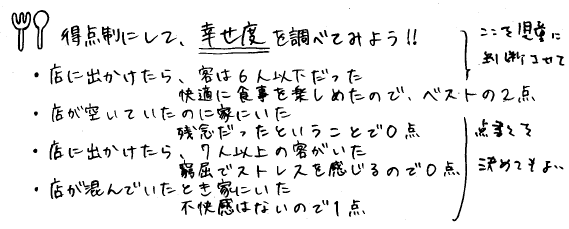 得点制にして、幸せ度を調べてみよう!!
・店に出かけたら、客は6人以下だった
快適に食事を楽しめたので、ベストの2点
・店が空いていたのに家にいた
残念だったということで0点
・店に出かけたら、7人以上の客がいた
窮屈でストレスを感じるので0点
・店が混んでいたとき家にいた
不快感はないので1点
ここを児童に
判断させて
点数を
決めてもよい